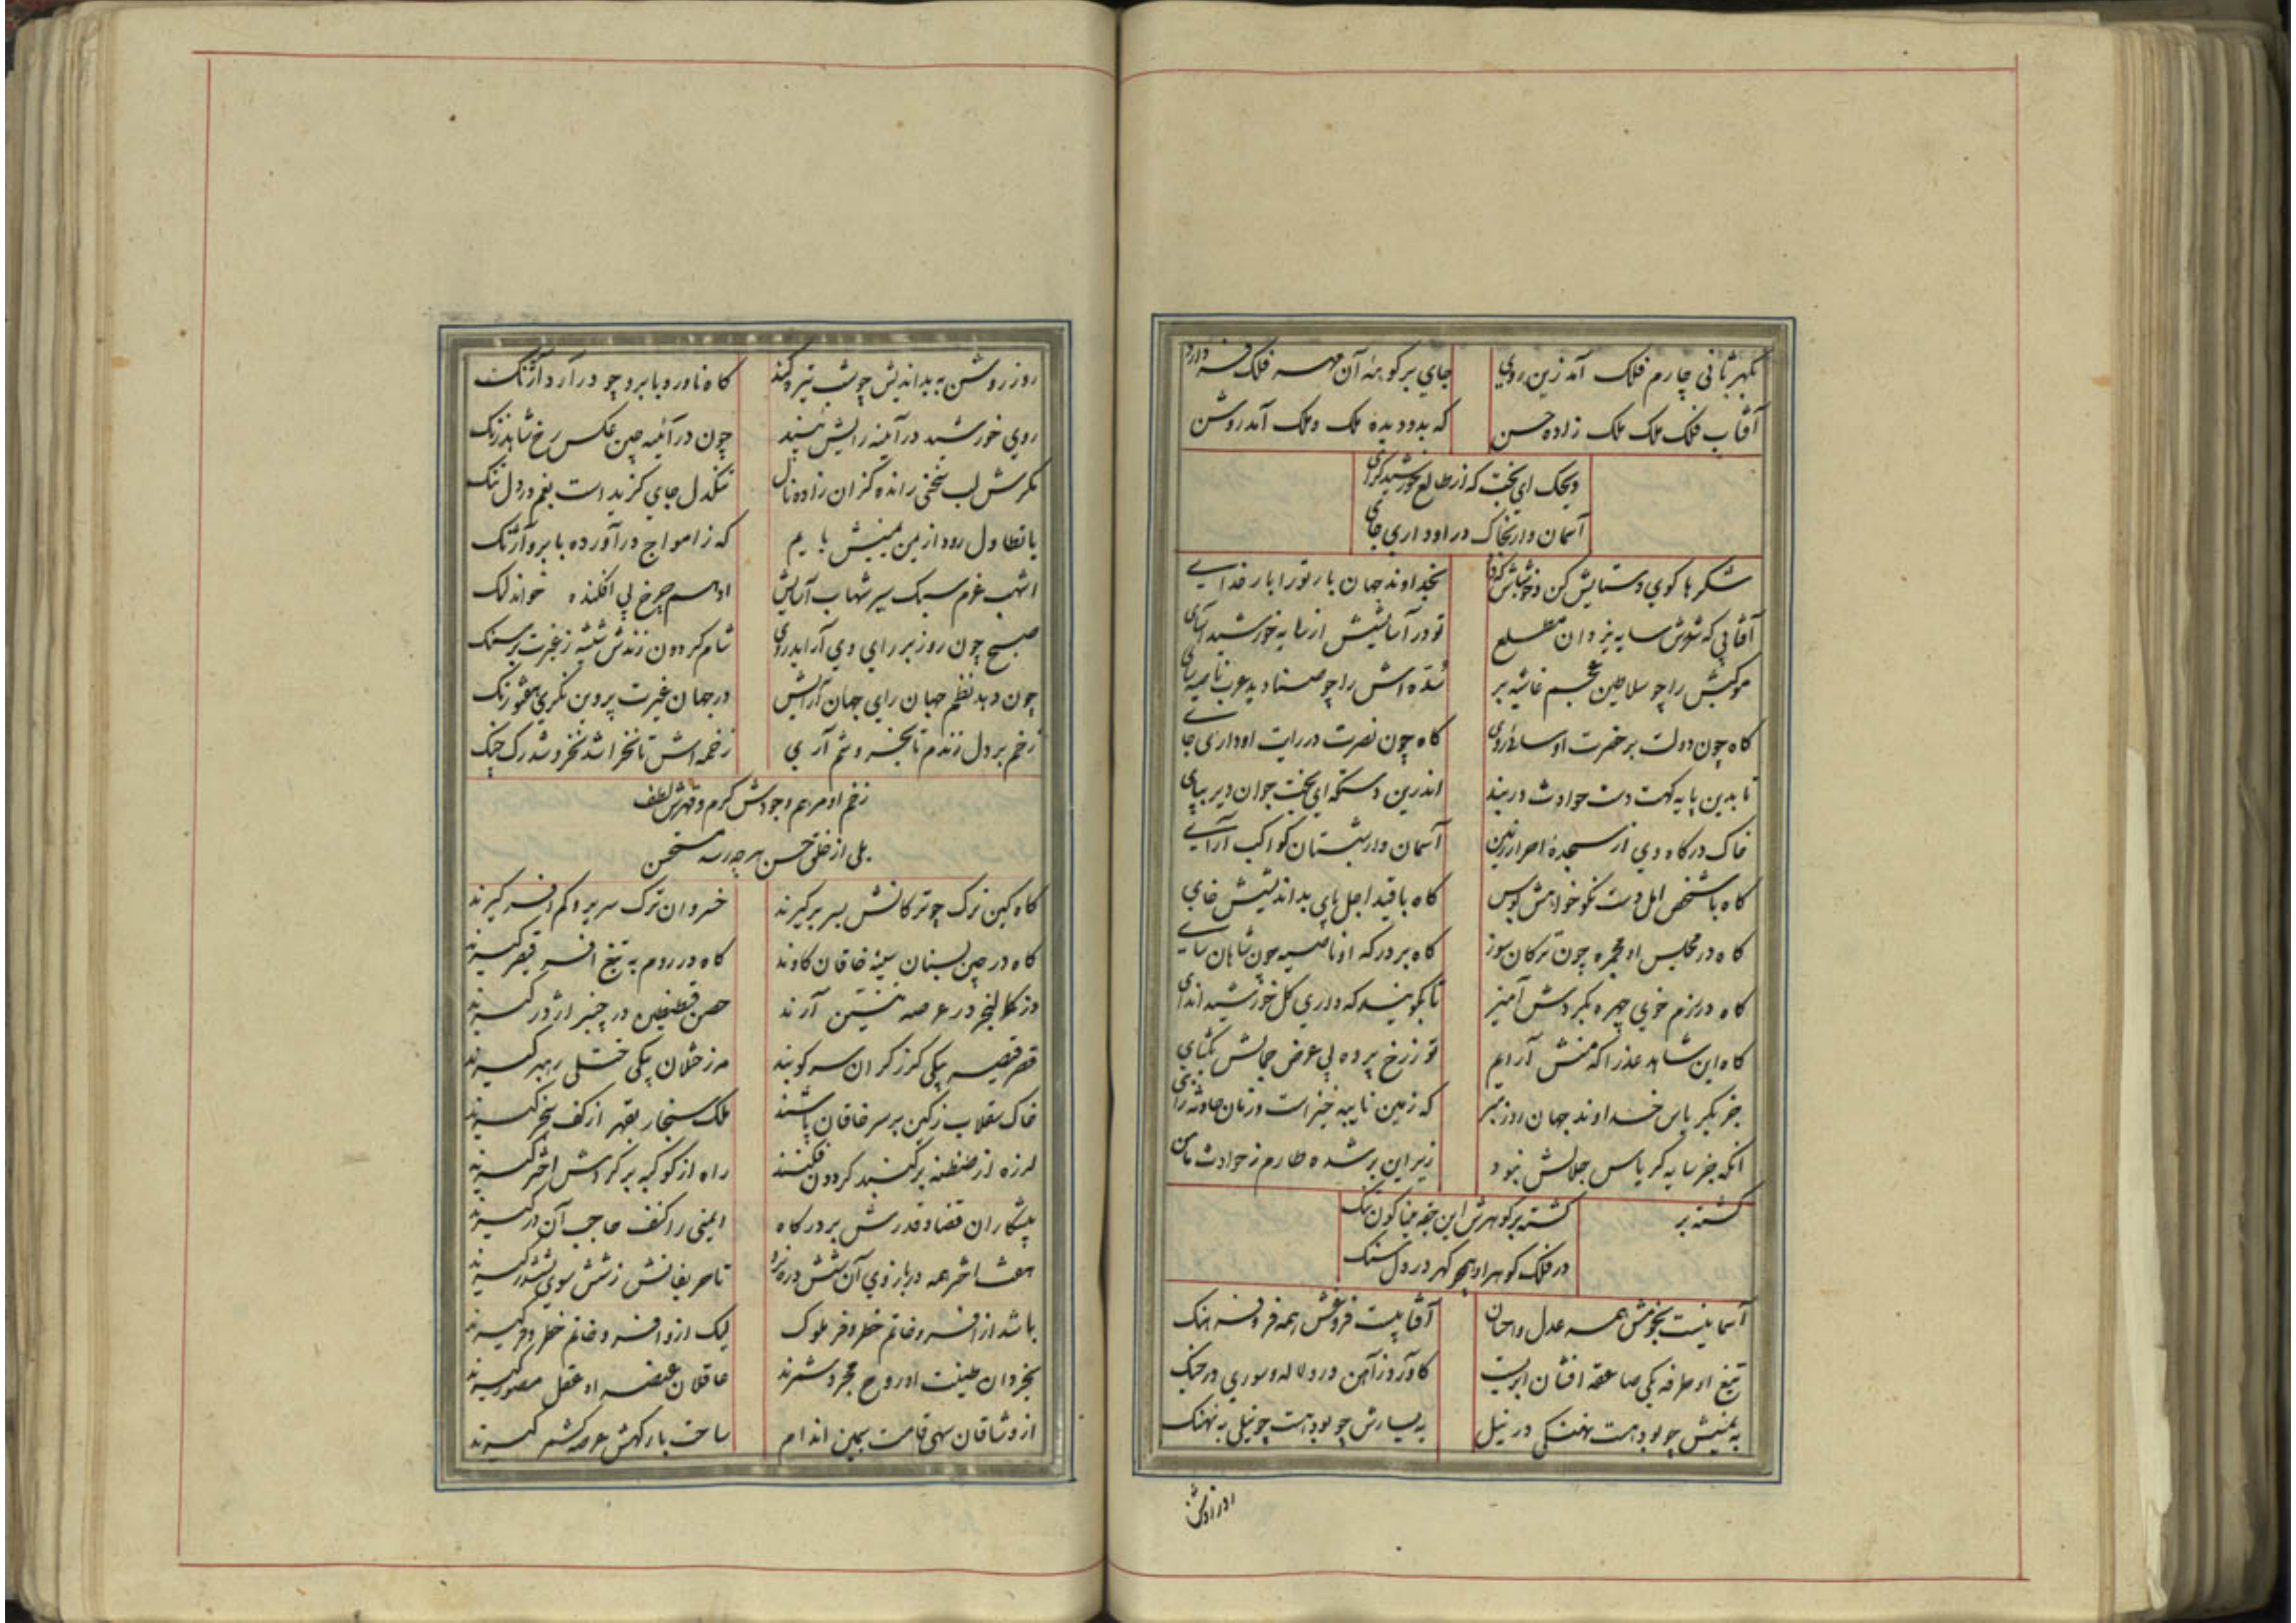 بگهر ثانی چارم فلک آمد زین روی
جای بر کوهۀ آن مهر فلک فر دارد
آفتاب فلک ملک ملک زاده حسن
که بدو دیده ملک و فلک آمد روشن
ویحک ای بخت که از طالع خورشید گرای
آسمان وار بخاک در او داری جای
شکرها گوی و ستایش کن و خوشباش که داد
بخداوند جهان بار تو را بار خدای
آفتابی که شدش سایه یزدان مطلع
تو در آسایش از سایه خورشید آسای
موکبش را چو سلاطین عجم غاشیه بر
سُدّه اش را چو صنادید عرب ناصیه سای
کاه چون دولت بر حضرت او سائی روی
کاه چون نصرت در رایت او داری جای
تا بدین پایه کهت دست حوادث در بند
اندرین دستگه ای بخت جوان دیر بپای
خاک درگاه وی از سجدۀ احرار زمین
آسمان وار شبستان کواکب آرای
کاه با شخص امل دست نکوخواهش بوس
کاه با قید اجل پای بداندیشش خای
کاه در مجلس او مجمره چون ترکان سوز
کاه بر درگه او ناصیه چون شاهان سای
کاه در بزم خوی چهره بگردش آمیز
تا بگویند که داری گل خورشید اندای
کاه این شاهد عذرا که منش آرایم
تو ز رخ پرده پی عرض جمالش بگشای
جز بکریاس خداوند جهان روز مبر
که زمین نایبه خیز است و زمان حادثه زای
آنکه جز سایه کریاس جلالش نبود
زیر این بر شده طارم ز حوادث مامن
گشته بر
گشته بر گوهرش این حقه مینا گون تنگ
در فلک گوهر او همچو گهر در دل سنگ
آسمانیست نجومش همه عدل و احسان
آفتابیست فروغش همه فر و فرهنگ
تیغ او طرفه یکی صاعقه افشان ابریست
کاورد ز آهن در ولاله و سوری در جنگ
به یمینش چو بود هست نهنگی در نیل
به یسارش چو بود هست چو نیلی به نهنگ
روز روشن به بداندیش چو شب تیره کند
کاه ناورد بابرو چو درآرد آژنگ
روی خورشید در آینه رایش بیند
چون در آئینه چین عکس رخ شاهد زنگ
مگرش لب سخنی رانده کزان زاده نال
تنگدل جای گزیده است بغم در دل تنگ
با تطاول رود از من منیش با یم
که ز امواج درآورده بابرو آژنگ
اشهب عزم سبک سیر شهاب آسایش
ادهم چرخ پی افکنده خواند لنگ
صبح چون روز بر رای وی آراید روی
شام گردون زندش شیشه ز غیرت بر سنگ
چون دهد نظم جهان رای جهان آرایش
در جهان غیرت پروین نگری هفتورنگ
زخم بر دل زندم تا بخروشم آری
زخمه اش تا نخراشد نخروشد رگ چنگ
زخم او مرهم و جودش کرم و قهرش لطف
بلی از خلق حسن هر چه رسد مستحسن
کاه کین ترک چو ترکانش بسر برگیرند
خسروان ترک سر برو کم افسر گیرند
کاه در چین بسنان سینه خاقان کاوند
کاه در روم به تیغ افسر قیصر گیرند
دز کالنجر در عرصه نشیمن آرند
حصن قسطنطین در چنبر اژدر گیرند
قصر قیصر بیکی گرز گران سر کوبند
مرز ختلان بیکی ختلی رهبر گیرند
خاک سقلاب ز کین بر سر خاقان پاشند
ملک سنجار بقهر از کف سنجر گیرند
لرزه از طنطنه بر گنبد گردون فکنند
راه از کوکبه بر گردش اختر گیرند
پیشکاران قضا و قدرش بر درگاه
ایمنی را کنف حاجب آن در گیرند
هفت اختر همه در بازوی آن شش دره نرد
تا حریفانش ز شش سوی بششدر گیرند
باشد از افسر و خاتم خطر و فر ملوک
لیک ازو افسر و خاتم خطر و فر گیرند
بخردان طینت او روح مجرد شمرند
عاقلان عنصر او عقل مصور گیرند
از وشاقان سهی قامت سیمین اندام
ساحت بارگهش عرصه کشمر گیرند